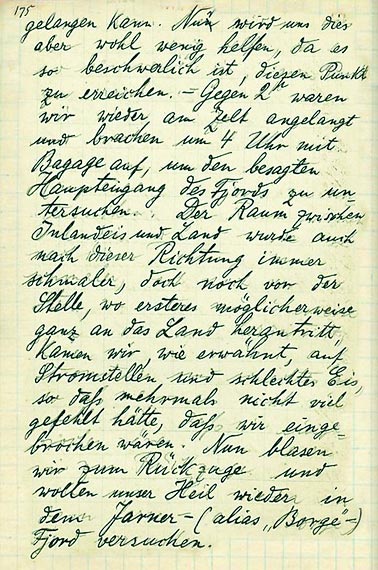 175
gelangen kann. Nun wird uns dies
aber wohl wenig helfen, da es
so beschwerlich ist, diesen Punkt
zu erreichen. – Gegen 2ʰ waren
wir wieder am Zelt angelangt
und brachen um 4 Uhr mit
Bagage auf, um den besagten
Haupteingang des Fjords zu un-
tersuchen. Der Raum zwischen
Inlandeis und Land wurde auch
nach dieser Richtung immer
schmaler, doch noch vor der
Stelle, wo ersteres möglicherweise
ganz an das Land herantritt,
kamen wir, wie erwähnt, auf
Stromstellen und schlechtes Eis,
so daß mehrmals nicht viel
gefehlt hätte, daß wir einge-
brochen wären. Nun blasen
wir zum Rückzuge und
wollen unser Heil wieder in
dem Jarner- (alias „Borge"-)
Fjord versuchen.